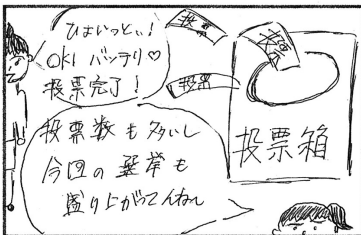 ひょいっとぃ!
OKI バッテリ♡
投票完了!
投票
投票
投票
投票箱
投票数も多いし
今回の選挙も
盛り上がってんねん